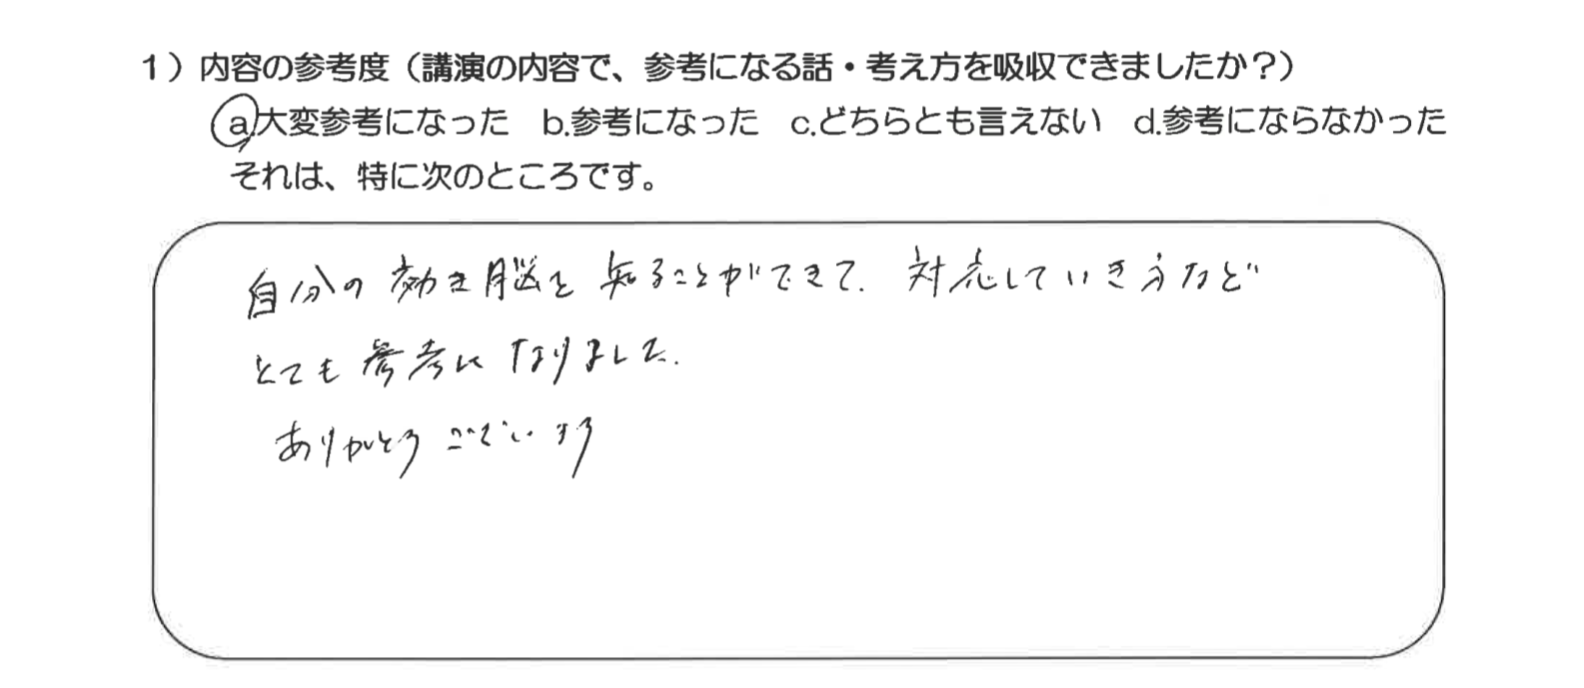 1）内容の参考度（講演の内容で、参考になる話・考え方を吸収できましたか？）
a.大変参考になった b.参考になった c.どちらとも言えない d.参考にならなかった
それは、特に次のところです。
自分の効き脳を知ることができて、対応していき方など
とても参考になりました。
ありがとうございます